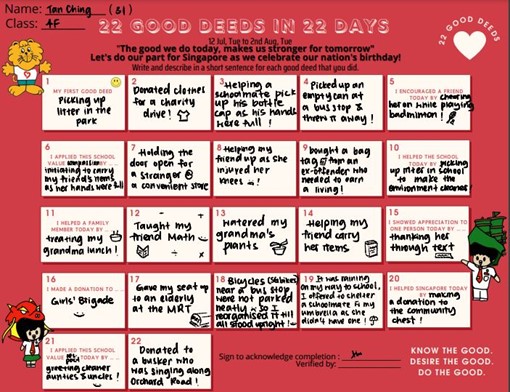 Name: Tan Ching (31)
Class: 4F
22 GOOD DEEDS IN 22 DAYS
22 GOOD DEEDS
12 Jul, Tue to 2nd Aug, Tue
"The good we do today, makes us stronger for tomorrow"
Let's do our part for Singapore as we celebrate our nation's birthday!
Write and describe in a short sentence for each good deed that you did.
1
MY FIRST GOOD DEED
Picking up
litter in the
park
2
Donated clothes
for a charity
drive!
3
Helping a
schoolmate pick
up his bottle
cap as his hands
were full!
4
Picked up an
empty can at
a bus stop &
threw it away!
5
I ENCOURAGED A FRIEND
TODAY BY cheering
her on while playing
badminton!
6
I APPLIED THIS SCHOOL
VALUE compassion
initiating to carry
my friend's items
as her hands were full
7
Holding the
door open for
a stranger @
a convenient store
8
Helping my
friend up as she
injured her
knees
9
Bought a bag
tag from an
ex-offender who
needed to earn
a living!
10
I APPLIED THIS SCHOOL
picking
up litter in school
to make the
environment cleaner!
11
I HELPED A FAMILY
MEMBER TODAY BY ...
treating my
grandma lunch!
12
Taught my
friend Math
13
Watered my
grandma's
plants
14
Helping my
friend carry
her items
15
I SHOWED APPRECIATION TO
ONE PERSON TODAY BY ...
thanking her
through text
16
I MADE A DONATION TO ...
Girls' Brigade
17
Gave my seat up
to an elderly
at the MRT
18
Bicycles (SG bikes)
near a bus stop
were not parked
neatly so I
reorganised it till
all stood upright!
19
It was raining
on my way to school,
I offered to shelter
a schoolmate w my
umbrella as she
didn't have one!
20
I HELPED SINGAPORE TODAY
BY making
a donation to
the community
chest!
21
TODAY BY ...
greeting cleaner
aunties & uncles!
22
Donated to
a busker who
was singing along
Orchard Road!
Sign to acknowledge completion :
Verified by:
KNOW THE GOOD.
DESIRE THE GOOD.
DO THE GOOD.